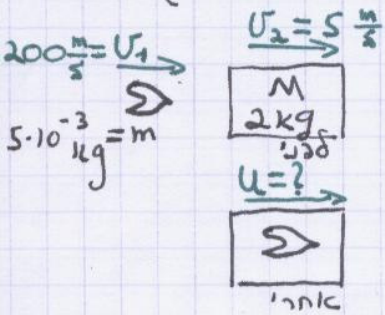 200 m/s = U₁
5·10⁻³ kg = m
U₂ = 5 m/s
M
2kg
לפני
u = ?
אחרי